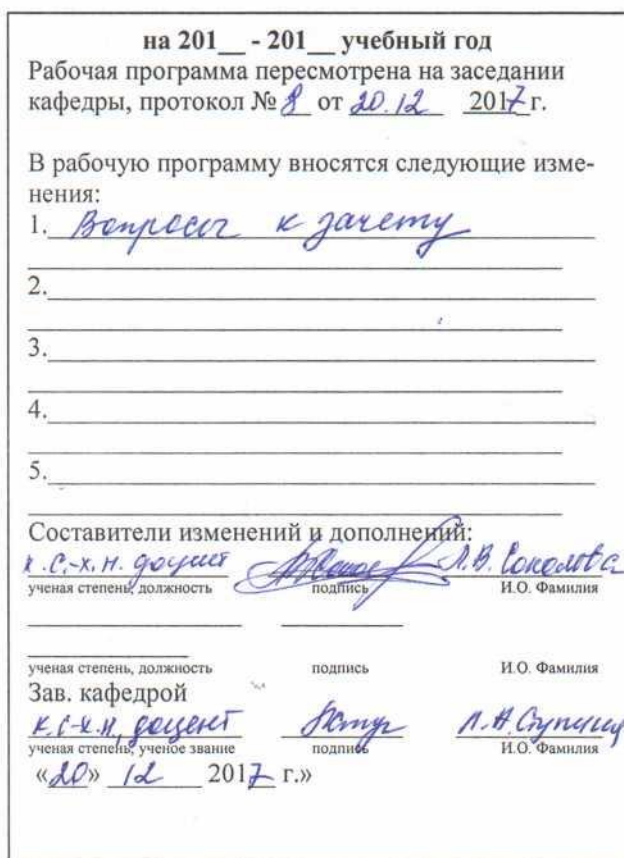 на 201__ - 201__ учебный год
Рабочая программа пересмотрена на заседании
кафедры, протокол № 8 от 20.12 2017 г.
В рабочую программу вносятся следующие изме-
нения:
1. Вопросы к зачету
2.
3.
4.
5.
Составители изменений и дополнений:
к.с.-х.н. доцент Л.В. Соколова
ученая степень, должность подпись И.О. Фамилия
ученая степень, должность подпись И.О. Фамилия
Зав. кафедрой
к.с-х.н, доцент
ученая степень, ученое звание подпись И.О. Фамилия
«20» 12 2017 г.»